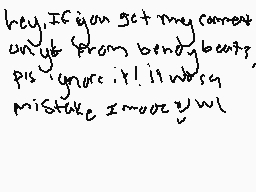 hey, If you get my comment
on yt from bendy beats,
pls ignore it! it was a
mistake I made